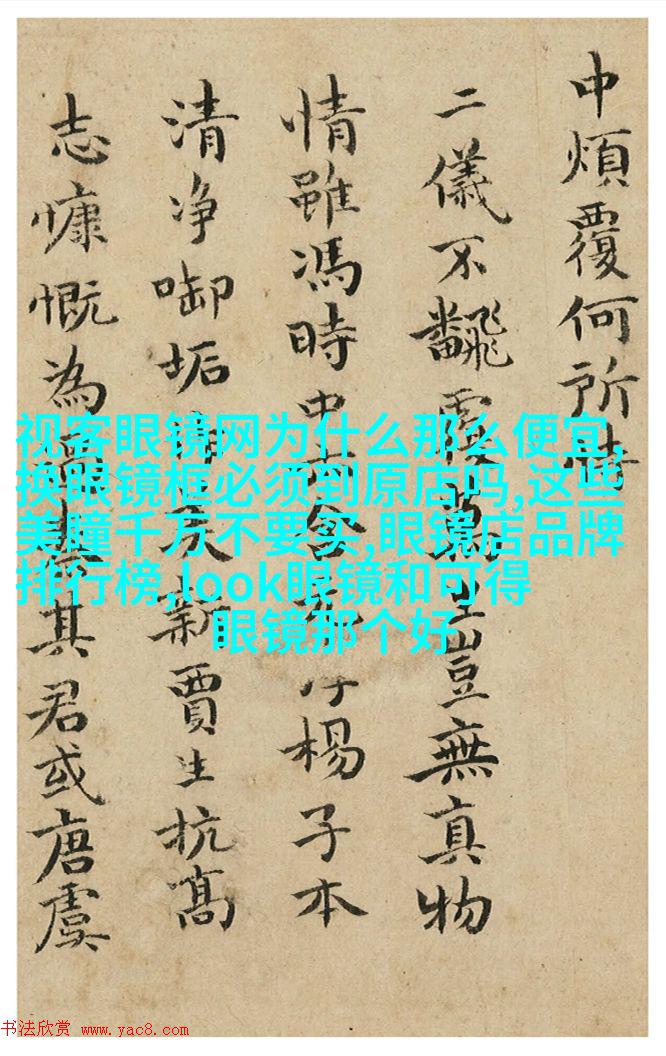 中煩覆何所
二儀不飜豈無真物
情雖馮時中楊子本
清净啣垢新賈生抗高
志慷慨為其君或唐虞
视客眼镜网为什么那么便宜,
换眼镜框必须到原店吗,这些
美瞳千万不要买,眼镜店品牌
排行榜,look眼镜和可得
眼镜那个好
书法欣赏 www.yac8.com